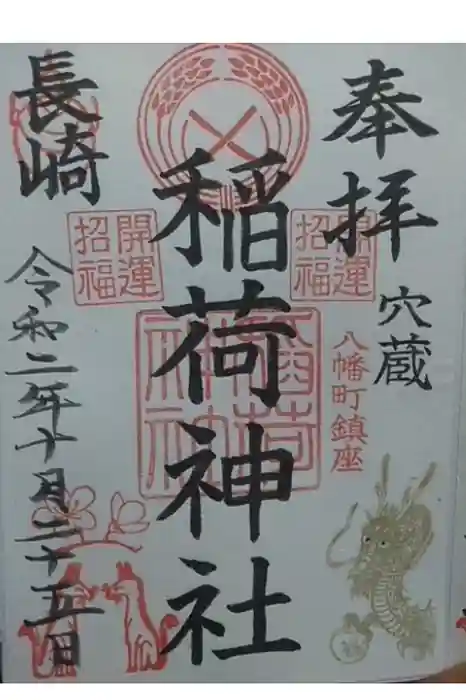 奉拝
穴蔵
八幡町鎮座
開運
招福
稲荷神社
開運
招福
長崎
令和二年十月二十五日